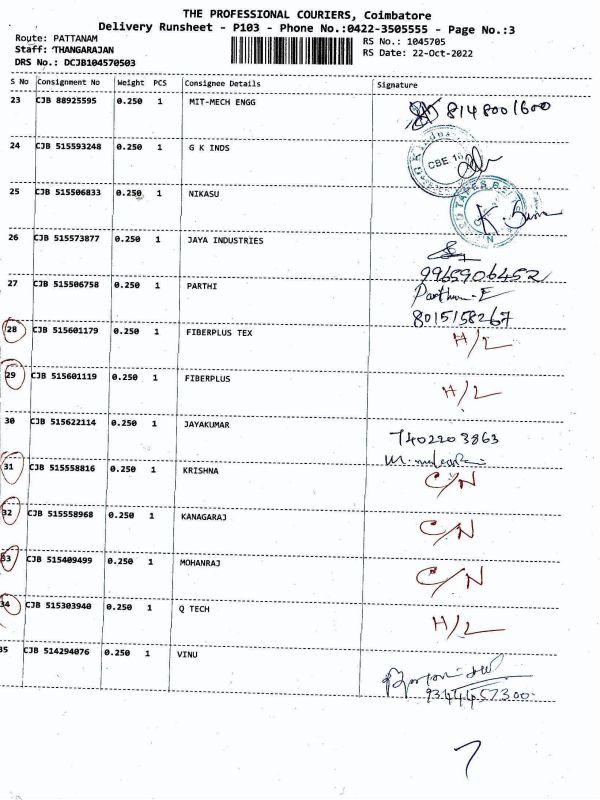 THE PROFESSIONAL COURIERS, Coimbatore
Delivery Runsheet - P103 - Phone No.:0422-3505555 - Page No.:3
Route: PATTANAM
Staff: THANGARAJAN
DRS No.: DCJB104570503
RS No.: 1045705
RS Date: 22-Oct-2022
S No Consignment No Weight PCS Consignee Details Signature
23 CJB 88925595 0.250 1 MIT-MECH ENGG 8148001600
24 CJB 515593248 0.250 1 G K INDS
CBE
25 CJB 515506833 0.250 1 NIKASU
26 CJB 515573877 0.250 1 JAYA INDUSTRIES
9965906452
27 CJB 515506758 0.250 1 PARTHI
8015158267
28 CJB 515601179 0.250 1 FIBERPLUS TEX H/L
29 CJB 515601119 0.250 1 FIBERPLUS H/L
30 CJB 515622114 0.250 1 JAYAKUMAR 7402203863
31 CJB 515558816 0.250 1 KRISHNA C/N
32 CJB 515558968 0.250 1 KANAGARAJ C/N
33 CJB 515409499 0.250 1 MOHANRAJ C/N
34 CJB 515303940 0.250 1 Q TECH H/L
35 CJB 514294076 0.250 1 VINU
9344457300